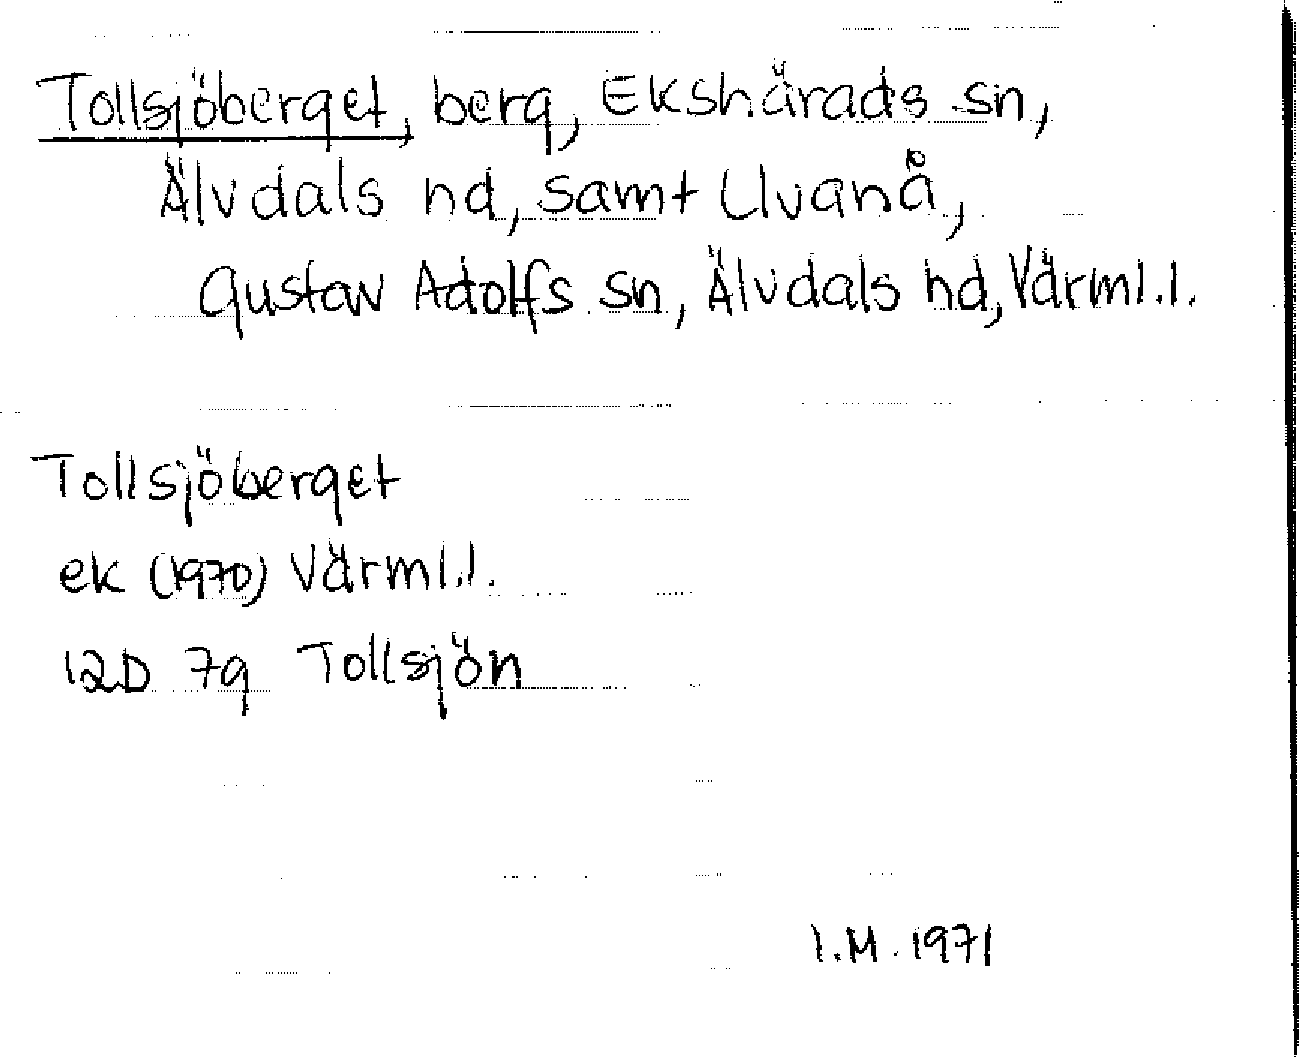 Tollsjöberget, berg, Ekshärads sn,
Älvdals hd, samt Uvanå,
Gustav Adolfs sn, Älvdals hd, Värml.l.
Tollsjöberget
ek (1970) Värml.l.
12D 7g Tollsjön
I.M. 1971